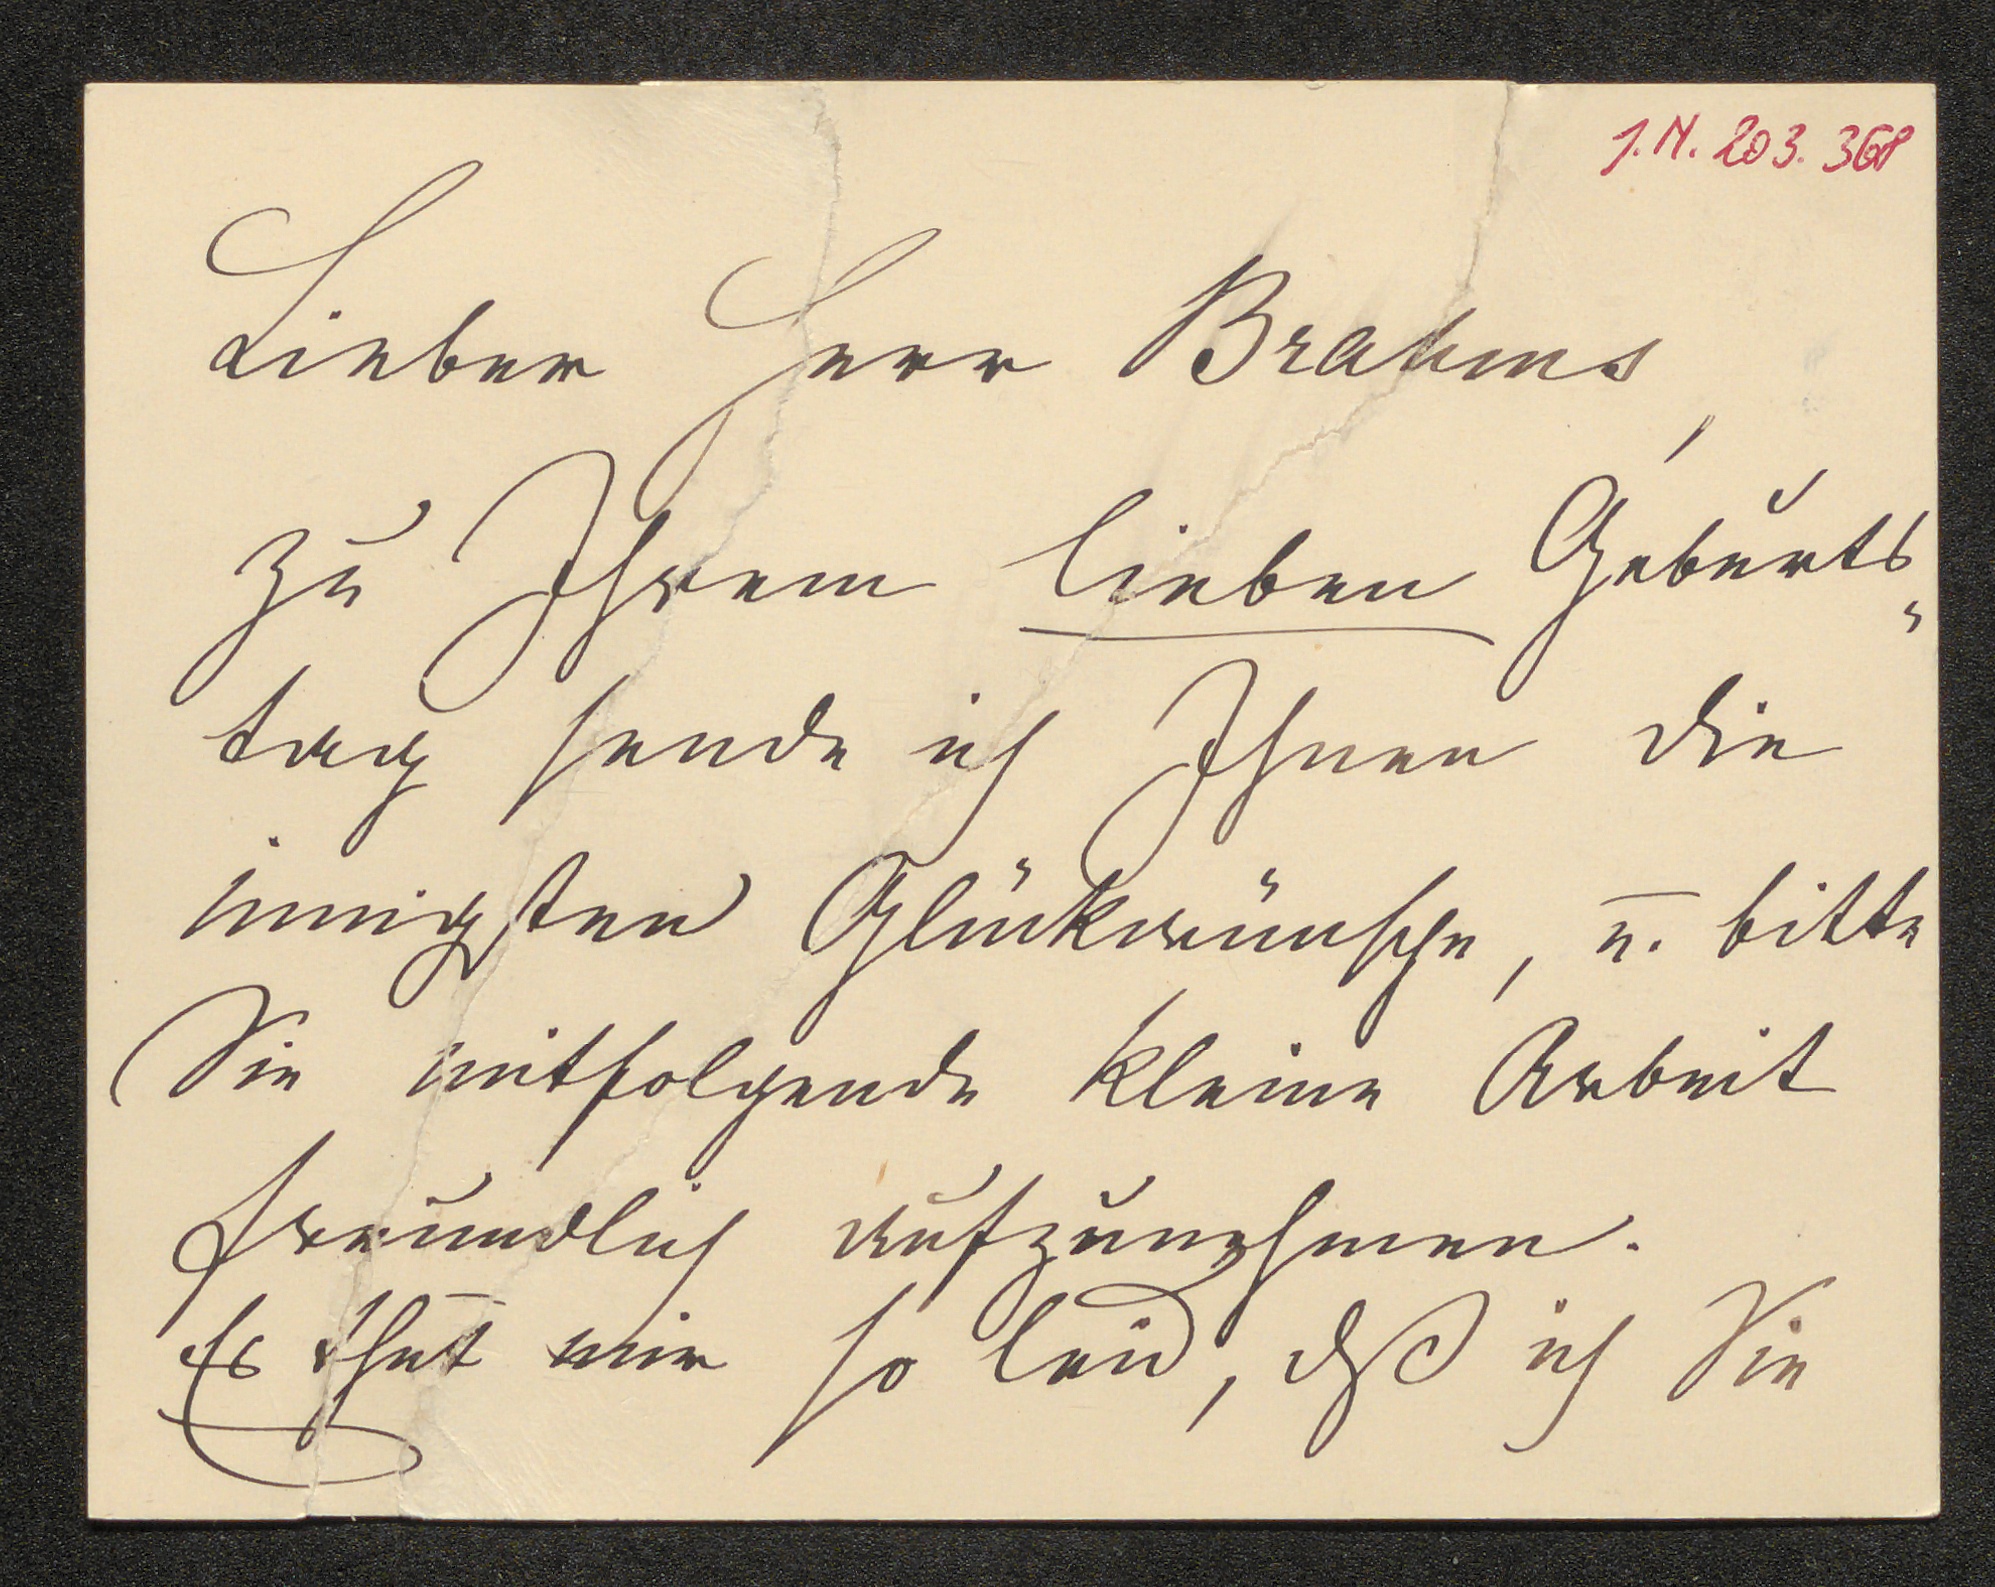 J.N. 203.368
Lieber Herr Brahms,
zu Ihrem lieben Geburts-
tag sende ich Ihnen die
innigsten Glückwünsche, u. bitte
Sie mitfolgende kleine Arbeit
freundlich aufzunehmen.
Es thut mir so leid, dß ich Sie